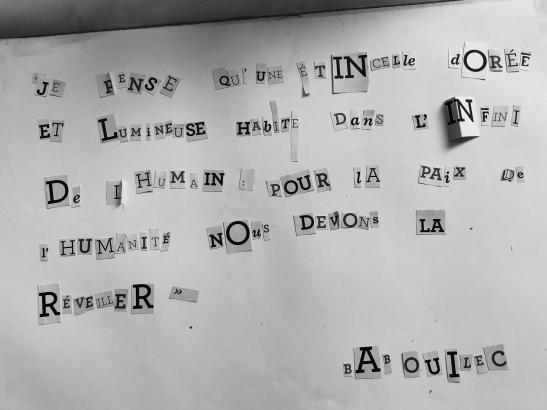 "JE PENSE QU'UNE ÉTINCELLe dORÉE
ET LUMiNEUSE HABITE Dans L'INFINI
De l'HUMAIN : POUR lA PAiX De
l'HUMANITÉ NOus DEVONs LA
RÉVEILLER "
BABOUILEC